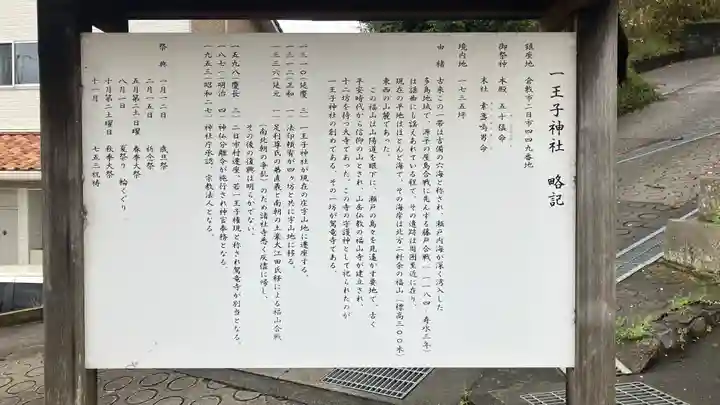 一王子神社 略記
鎮座地 倉敷市二日市四四九番地
御祭神 本殿 五十猛命
末社 素盞嗚男命
境内地 一七七五坪
由緒 古来この一帯は吉備の穴海と称され、瀬戸内海が深く湾入した
多島地域で、源平の屋島合戦に先んずる藤戸合戦(一一八四 寿永三年)
は謡曲にも謡えあれている程で、その遺跡は周囲至近に在り、
現在の平地はほとんど海で、その海岸は北方二粁余の福山(標高三〇〇米)
東西の山麓であった。
この福山は山陽道を眼下に、瀬戸の島々を見遙かす要地で、古く
平安時代から信仰の山とされ、山岳仏教の福山寺が建立され、
十二坊を持つ大寺であった。この寺の守護神として祀られたのが
一王子神社の創めである。その一坊が鴛竜寺である。
一三一〇(延慶 三)一王子神社が現在の庄字山地に遷座する。
一三一二(正和 一)法印頼宥が四ヶ坊と共に字山地に移る。
一三三六(延元 一)足利尊氏の弟直義と南朝の土豪大江田氏経による福山合戦
(南北朝の争乱)のため諸社寺悉く灰燼に帰し、
その後の復興は明らかでない。
一五九八(慶長 三)二日市村遷座、若一王子権現と称われ鴛竜寺が別当となる。
一八七一(明治 四)神仏分離令が施行され神官奉務となる。
一九五三(昭和二七)神社庁承認、宗教法人となる。
祭典 一月一二日 歳旦祭
二月一五日 祈念祭
五月第二日曜 春季大祭
八月一日 夏祭り 輪くぐり
十月第二土曜日 秋季大祭
十一月 七五三祝祷